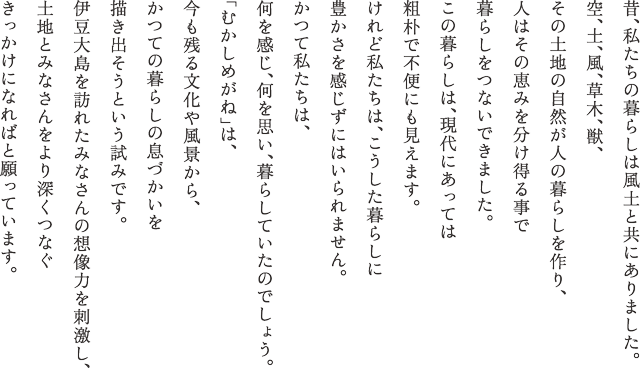 昔、私たちの暮らしは風土と共にありました。
空、土、風、草木、獣、
その土地の自然が人の暮らしを作り、
人はその恵みを分け得る事で
暮らしをつないできました。
この暮らしは、現代にあっては
粗朴で不便にも見えます。
けれど私たちは、こうした暮らしに
豊かさを感じずにはいられません。
かつて私たちは、
何を感じ、何を思い、暮らしていたのでしょう。
「むかしめがね」は、
今も残る文化や風景から、
かつての暮らしの息づかいを
描き出そうという試みです。
伊豆大島を訪れたみなさんの想像力を刺激し、
土地とみなさんをより深くつなぐ
きっかけになればと願っています。